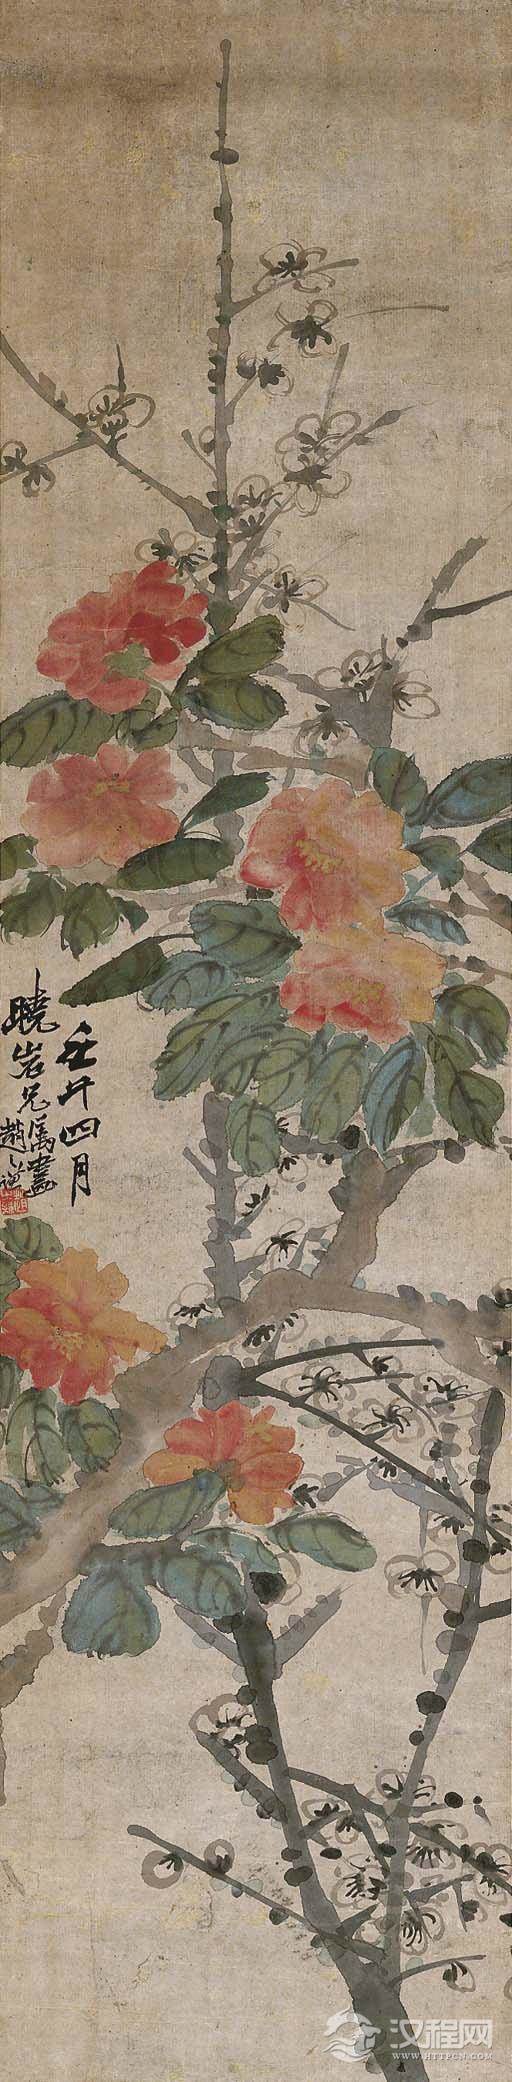 壬午四月
曉岩兄属畫
趙之謙
汉程网
WWW.HTTPCN.COM